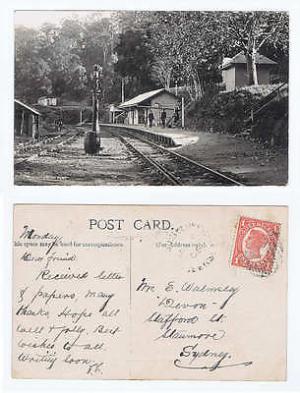 POST CARD.
This space may be used for correspondence
(For Address only).
Monday
Dear friend
Received letter
& papers, many
thanks. Hope all
well & jolly. Best
wishes to all.
Writing soon
Mr E. Walmsley
"Devon"
Stafford St
Stanmore
Sydney.